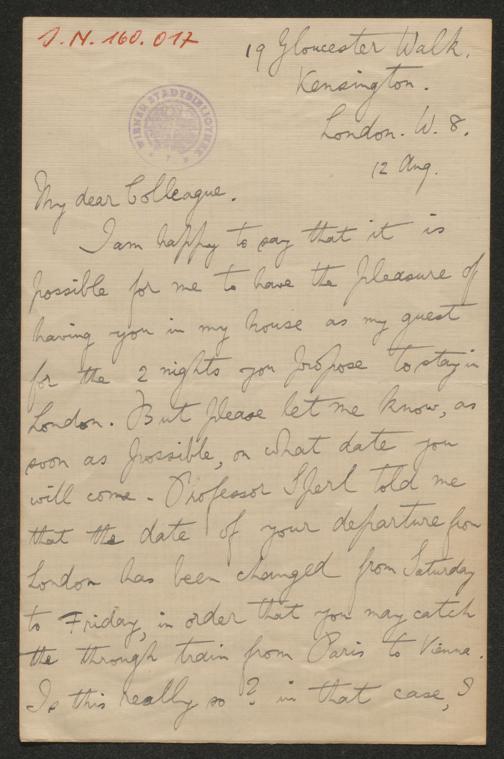 J.N. 160.017
19 Gloucester Walk.
Kensington.
London. W. 8.
WIENER STADTBIBLIOTHEK
12 Aug.
My dear Colleague.
I am happy to say that it is
possible for me to have the pleasure of
having you in my house as my guest
for the 2 nights you propose to stay in
London. But please let me know, as
soon as possible, on what date you
will come - Professor Sperl told me
that the date of your departure from
London has been changed from Saturday
to Friday, in order that you may catch
the through train from Paris to Vienna.
Is this really so? in that case, I